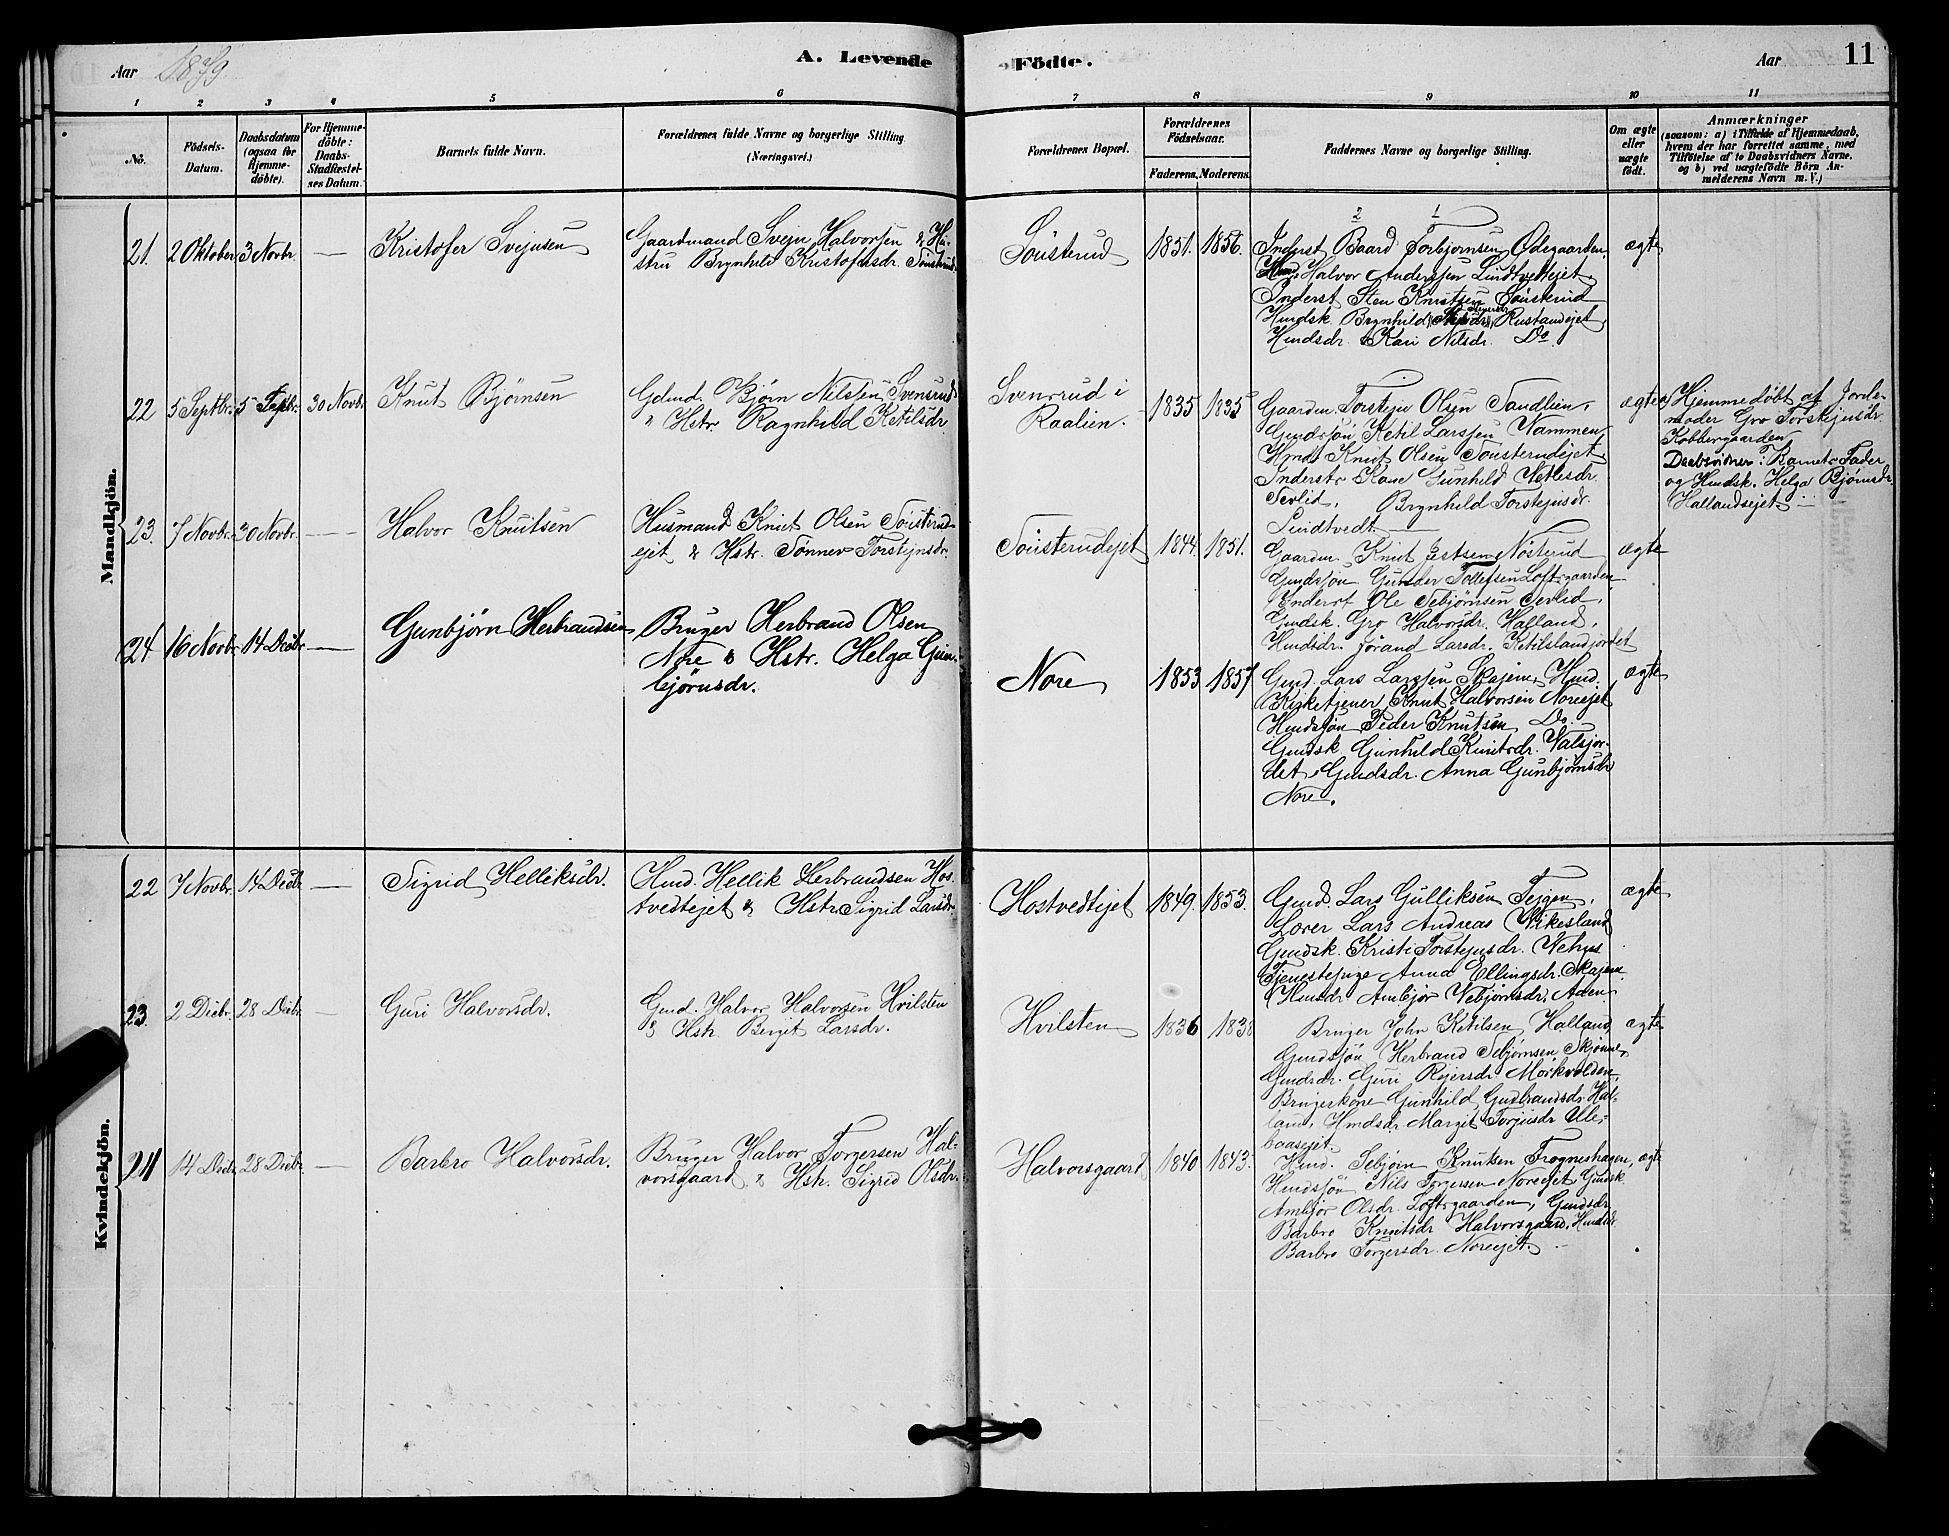 Aar 1879.
A. Levende Födte.
Aar
11
1 2 3 4 5 6 7 8 9 10 11
No.
Födsels-Datum.
Daabsdatum (ogsaa för Hjemme-döbte).
For Hjemme-döbte: Daabs-Stadfæstel-ses Datum.
Barnets fulde Navn.
Forældrenes fulde Navne og borgerlige Stilling (Næringsvei.)
Forældrenes Bopæl.
Forældrenes Födselsaar.
Faderens. Moderens.
Faddernes Navne og borgerlige Stilling.
Om ægte eller uægte födt.
Anmærkninger
(saasom: a) i Tilfælde af Hjemmedaab,
hvem der har forrettet samme, med
Tilföielse af to Daabsvidners Navne,
og b) ved uægtefödte Börn An-
melderens Navn m. V.)
Mandkjön.
21. 2 Oktober 3 Novbr. — Kristofer Svejnsen
Gaardmand Svejn Halvorsen & Hu-
stru Brynhild Kristofersdr. Tousterud
Tousterud 1851. 1856.
2 1
Inderst Baard Torbjørnsen Ødegaarden,
Hmd. Halvor Anderssen Lindtvedtejet
Inderst Sten Knutsen Tousterud
Hmdsk. Brynhild Rustandejet,
Hmdsdr. Kari Nilsdr. Do.
ægte
22 5 Septbr. 5 Septbr. 30 Novbr. Knut Bjørnsen
Gdmd. Bjørn Nilsen Svensrud
" Hstr. Ragnhild Ketilsdr.
Svensrud i
Raalien. 1835 1835
Gaardm. Torstejn Olsen Sandlien,
Gmdssøn Ketil Larssen Nammen
Hmd. Knut Olsen Tousterudejet
Inderstr. Kone Gunhild Ketilsdr.
Sevlid, Brynhild Torstejnsdr.
Lindtvedt.
ægte
Hjemmedøbt af Jorde-
moder Gro Torstejnsdr.
Kobbergaarden
Daabsvidner: Barnets Fader
og Hmdsk. Helga Bjørnsdr.
Hallandsejet
23. 7 Novbr. 30 Novbr. — Halvor Knutsen
Husmand Knut Olsen Tousterud-
ejet & Hstr. Tonnev Torstejnsdr.
Tousterudejet 1844. 1851.
Gaardm. Knut Nøsterud
Gmdssøn Gunder Tollefsen Loftsgaarden
Inderst Ole Sebjørnsen Sevlid,
Gmdsk. Gro Halvorsdr. Halland,
Hmdsdr. Jørand Larsdr. Ketilslandjordet
ægte
24 16 Novbr. 14 Decbr. — Gunbjørn Herbrandsen
Bruger Herbrand Olsen
Nore & Hstr. Helga Gun-
bjørnsdr.
Nore 1853 1857
Gmd. Lars Larssen Skajem, Hmd.
Kirketjener Knut Halvorsen Noreejet
Hmdssøn Peder Knutsen Do.
Gmdsk. Gunhild Knutsdr. Valsjor-
det, Gmdsdr. Anna Gunbjørnsdr.
Nore.
ægte
Kvindekjön.
22 7 Novbr. 14 Decbr. — Sigrid Helliksdr.
Hmd. Hellik Herbrandsen Hos-
tvedtejet & Hstr. Sigrid Larsdr.
Hostvedtejet 1849. 1853.
Gmd. Lars Gulliksen Tejgen,
Lærer Lars Andreas Vikesland
Gmdsk. Kristi Torstejnsdr. Vehus
Tjenestepige Anna Ellingsdr. Skajem
Hmdsdr. Ambjør Vebjørnsdr. Aaen
ægte
23. 2 Decbr. 28 Decbr. — Guri Halvorsdr.
Gmd. Halvor Halvorsen Hvilsten
& Hstr. Birgit Larsdr.
Hvilsten 1836 1838
Bruger John Ketilsen Halland
Gmdssøn Herbrand Sebjørnsen Skjønne,
Gmdsdr. Guri Rejersdr. Mørkvolden,
Brugerkone Gunhild Gudbrandsdr. Hal-
land, Hmdsdr. Margit Torjusdr. Ulle-
baasejet
ægte
24 14 Decbr. 28 Decbr. — Barbro Halvorsdr.
Bruger Halvor Torgersen Hal-
vorsgaard & Hstr. Sigrid Olsdr.
Halvorsgaard 1840 1843.
Hmd. Sebjørn Knutsen Frogneshagen,
Hmdssøn Nils Torgersen Noreejet Gmdsk
Ambjør Olsdr. Loftsgaarden, Gmdsdr.
Barbro Knutsdr. Halvorsgaard, Hmdsdr.
Barbro Torgersdr. Noreejet.
ægte